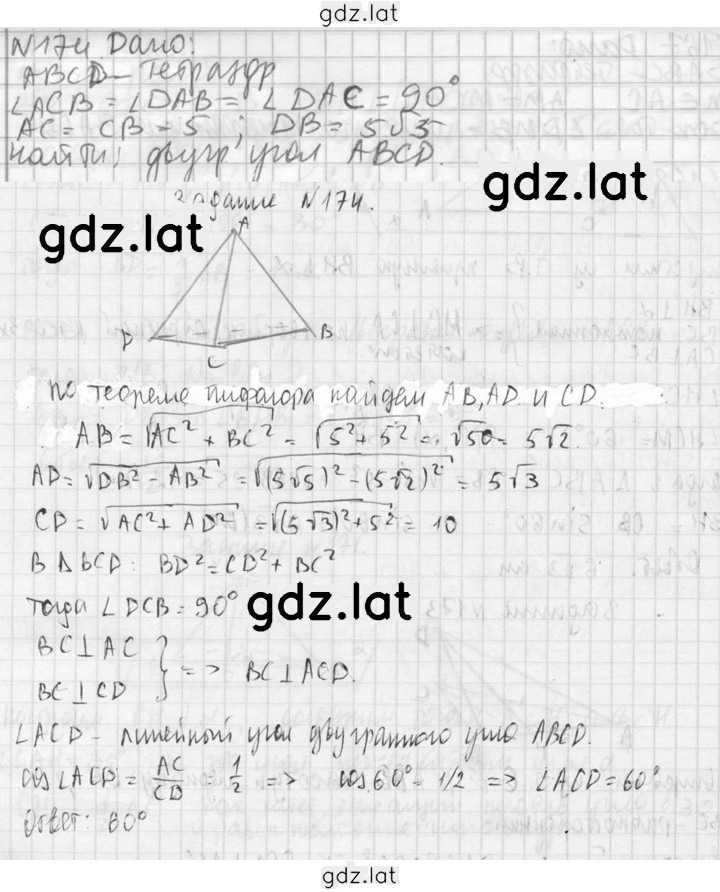 gdz.lat
N174 Дано:
ABCD - тетраэдр
∠ACB = ∠DAB = ∠DAC = 90°
AC = CB = 5; DB = 5√5
найти: двугр угол ABCD.
gdz.lat
Задание N174.
gdz.lat
A
D B
C
по теореме пифагора найдем AB, AD и CD.
AB = √AC² + BC² = √5² + 5² = √50 = 5√2.
AD = √DB² - AB² = √(5√5)² - (5√2)² = 5√3
CD = √AC² + AD² = √(5√3)² + 5² = 10
В ΔBCD: BD² = CD² + BC²
тогда ∠DCB = 90°
gdz.lat
BC ⊥ AC
BC ⊥ CD } => BC ⊥ ACD.
∠ACD - линейный угол двугранного угла ABCD.
cos ∠ACD = AC/CD = 1/2 => cos 60° = 1/2 => ∠ACD = 60°
Ответ: 60°
gdz.lat